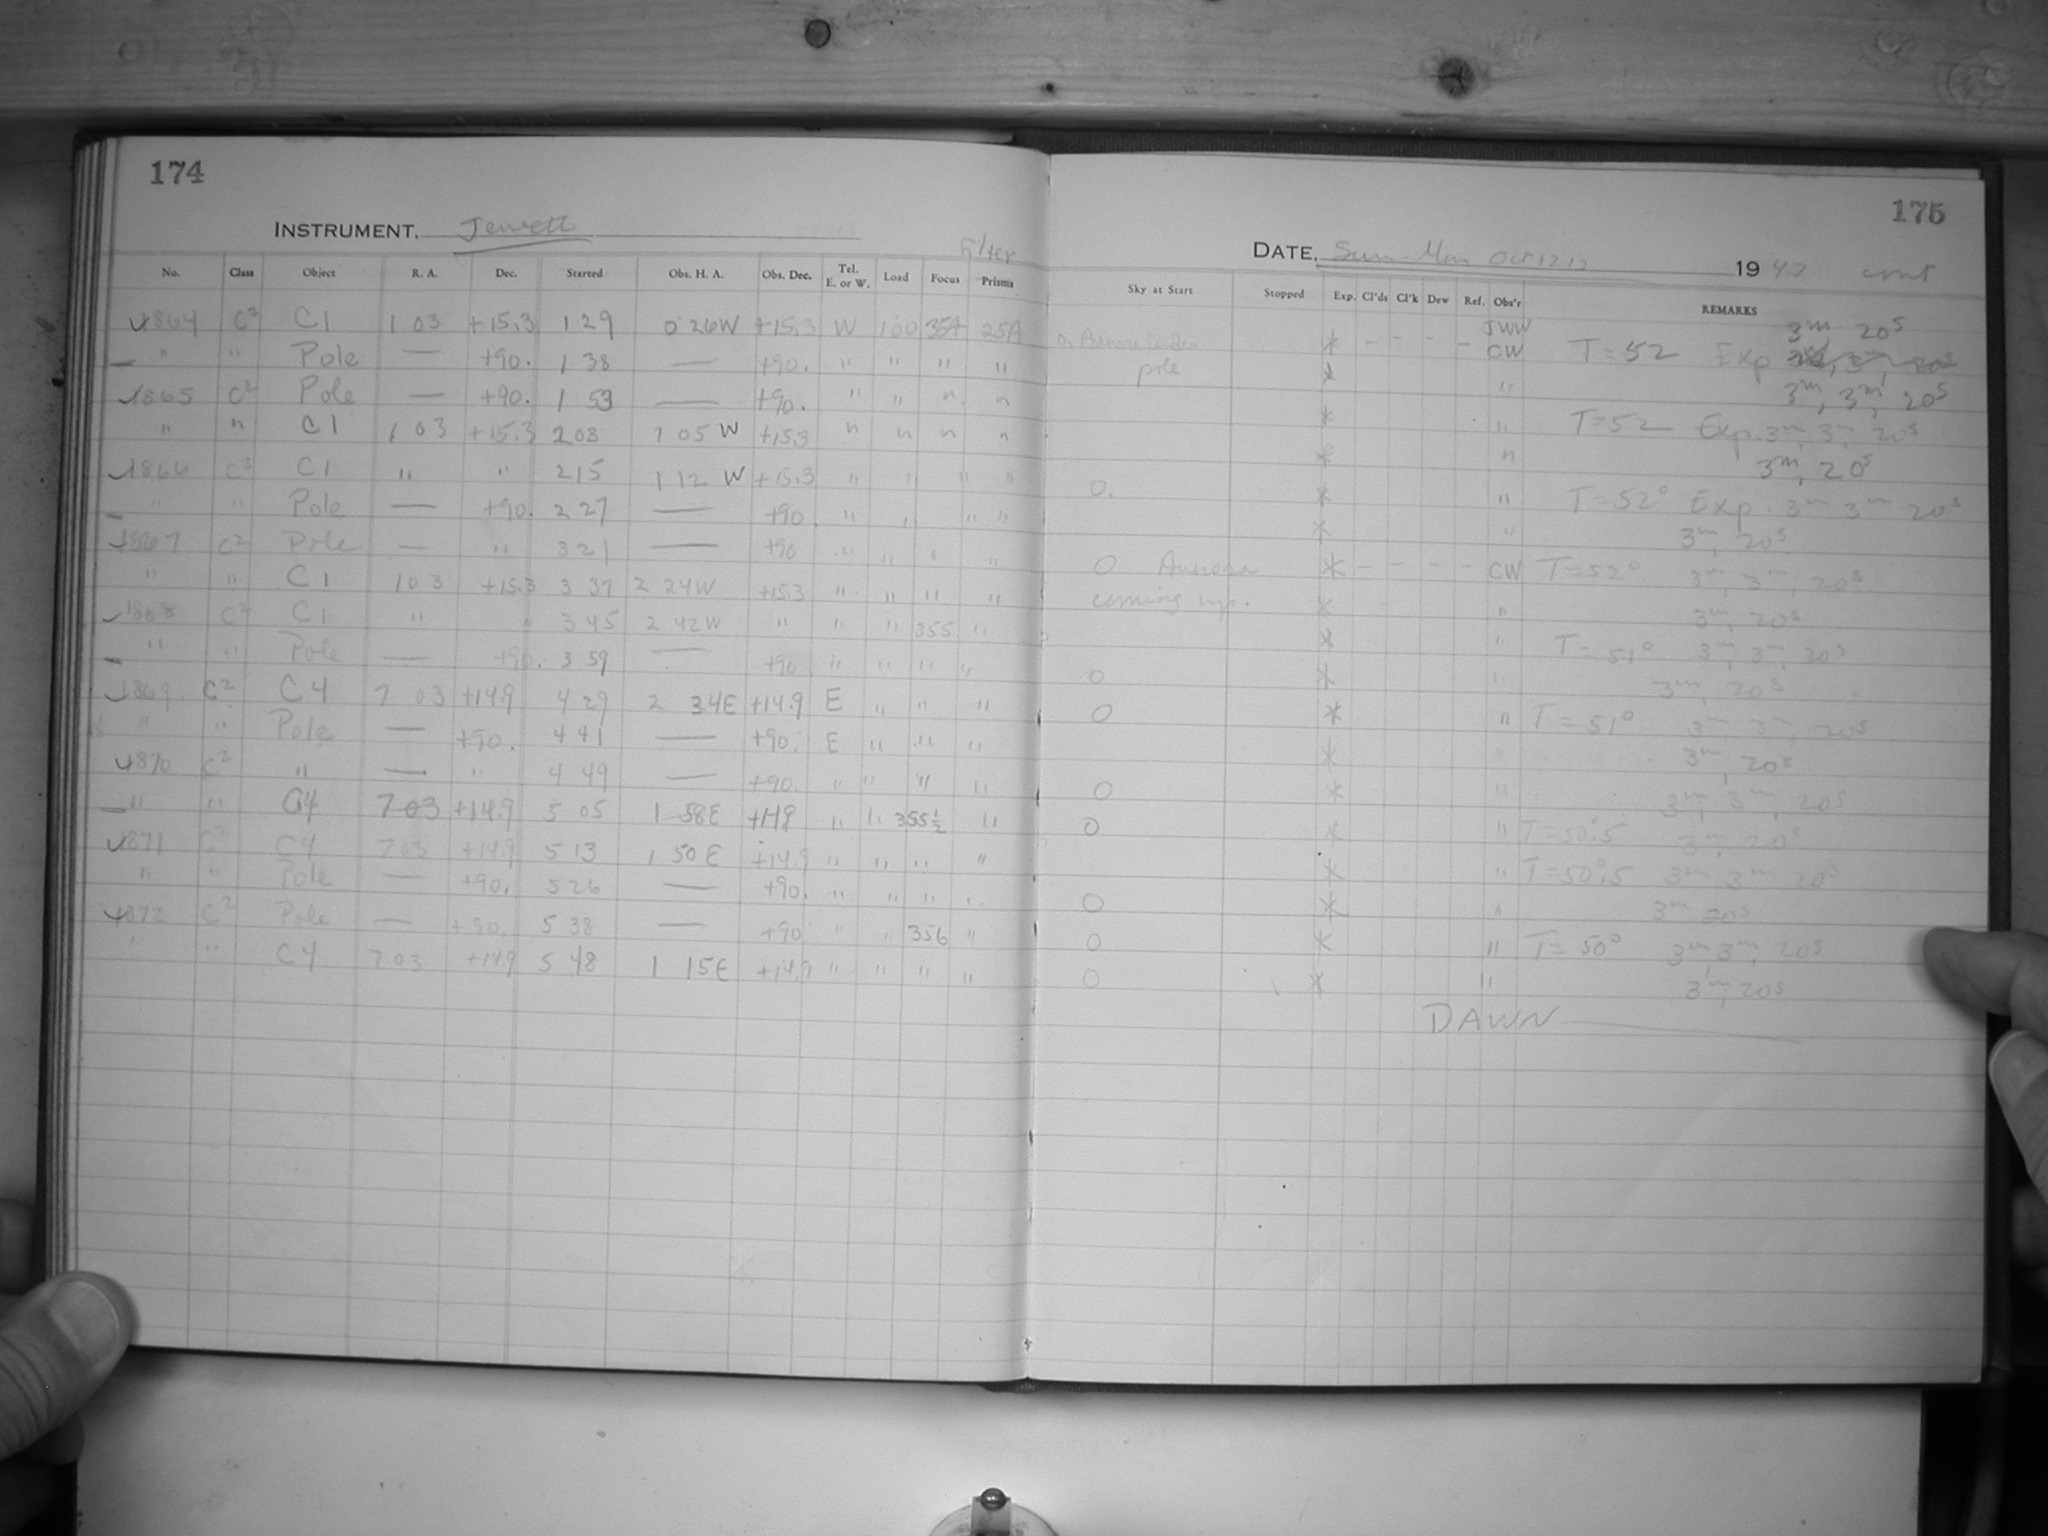 174
INSTRUMENT. Jewett
Filter
No. Class Object R. A. Dec. Started Obs. H. A. Obs. Dec. Tel. E. or W. Load Focus Prisms
1864 C2 C1 1 03 +15.3 1 29 0 26W +15.3 W 100 354 25A
" " Pole — +90. 1 38 — +90. " " " "
1865 C2 Pole — +90. 1 53 — +90. " " " "
" " C1 1 03 +15.3 2 08 1 05 W +15.3 " " " "
1866 C2 C1 " " 2 15 1 12 W +15.3 " " " "
" " Pole — +90. 2 27 — +90 " " " "
1867 C2 Pole — " 3 21 — +90 " " " "
" " C1 1 03 +15.3 3 37 2 24W +15.3 " " " "
1868 C2 C1 " " 3 45 2 42W " " " 355 "
" " Pole — +90. 3 59 — +90 " " " "
1869 C2 C4 7 03 +14.9 4 29 2 34E +14.9 E " " "
" " Pole — +90. 4 41 — +90. E " " "
1870 C2 " — " 4 49 — +90. " " " "
" " C4 7 03 +14.9 5 05 1 58E +14.9 " " 355½ "
1871 C2 C4 7 03 +14.9 5 13 1 50 E +14.9 " " " "
" " Pole — +90. 5 26 — +90. " " " "
1872 C2 Pole — +90. 5 38 — +90 " " 356 "
" " C4 7 03 +14.9 5 48 1 15E +14.9 " " " "
175
DATE, Sun-Mon Oct 12 13 1947 cont
Sky at Start Stopped Exp. Cl'ds Cl'k Dew Ref. Obs'r REMARKS
3m 20s
0. Aurora under * - - - - JWW CW T=52 Exp
pole * " 3m, 3m, 20s
* " T=52 Exp. 3m, 3m, 20s
* " 3m, 20s
0. * " T=52° Exp. 3m 3m 20s
* " 3m, 20s
0 Aurora * - - - - CW T=52° 3m, 3m, 20s
coming up. * " 3m, 20s
* " T=51° 3m, 3m, 20s
0 * " 3m, 20s
0 * " T=51° 3m, 3m, 20s
* " 3m, 20s
0 * " 3m, 3m, 20s
0 * " T=50°.5 3m, 20s
* " T=50°.5 3m 3m 20s
0 * " 3m 20s
0 * " T=50° 3m 3m, 20s
0 * " 3m, 20s
DAWN